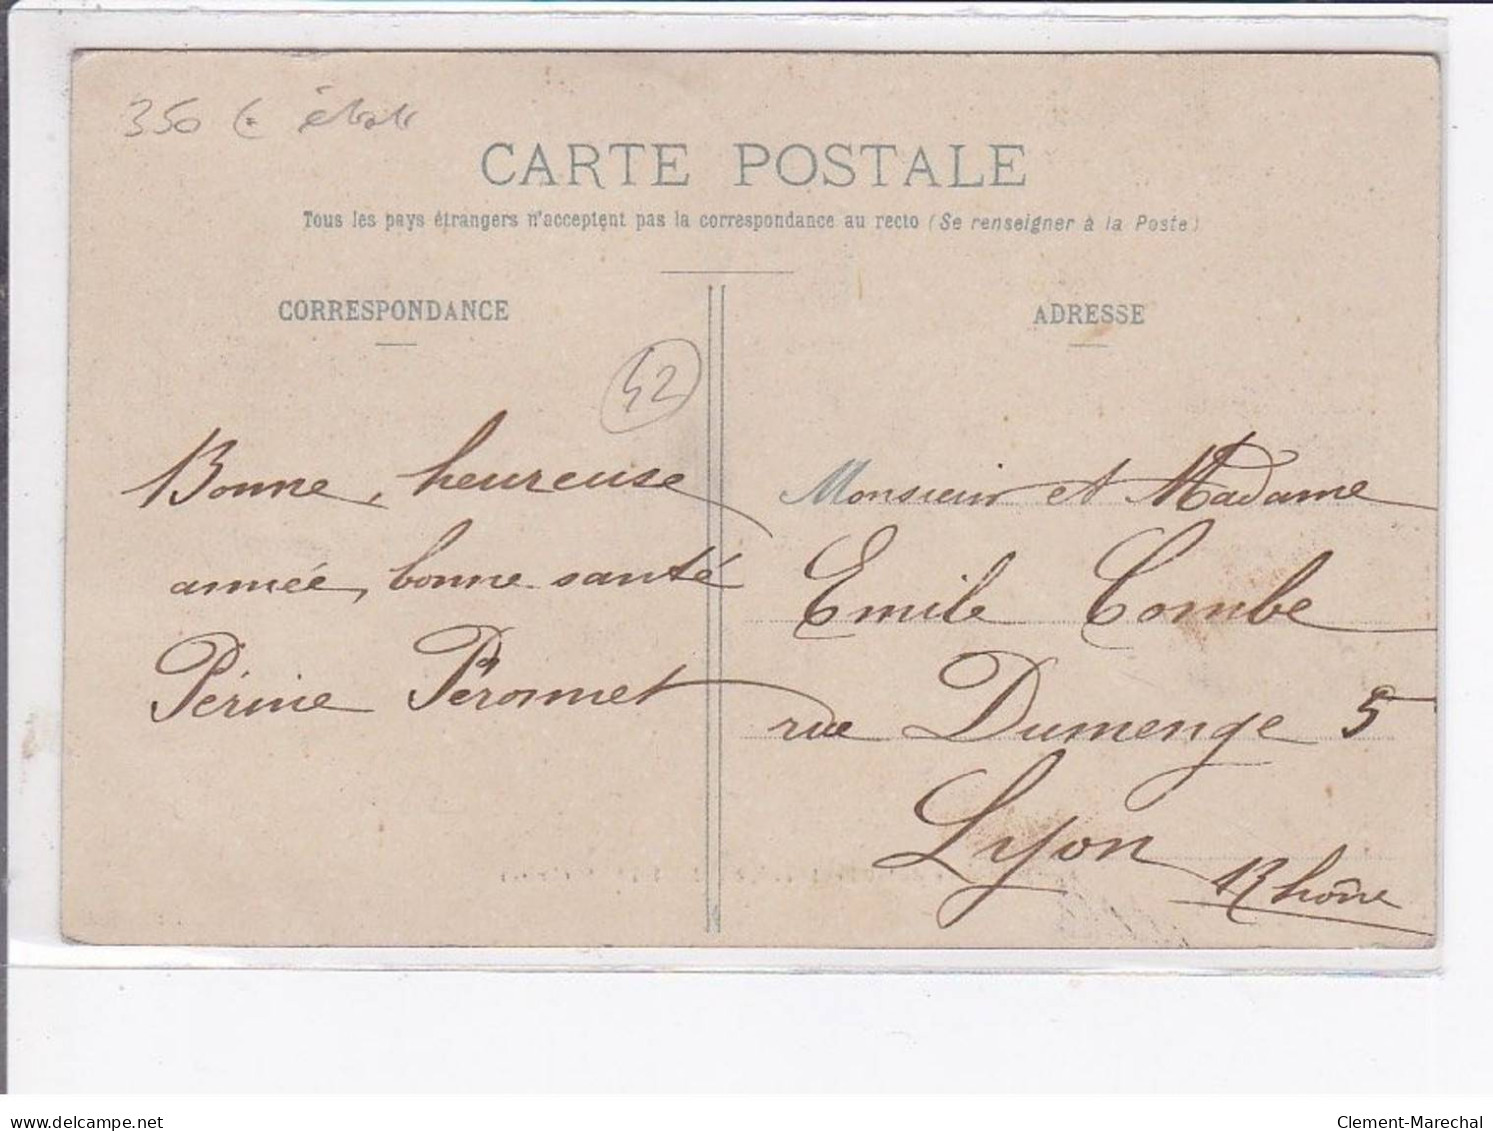 350 €
CARTE POSTALE
Tous les pays étrangers n'acceptent pas la correspondance au recto (Se renseigner à la Poste)
CORRESPONDANCE
ADRESSE
42
Bonne, heureuse
année, bonne santé
Périne Péronnet
Monsieur et Madame
Emile Combe
rue Dumenge 5
Lyon
Rhône
www.delcampe.net
Clement-Marechal